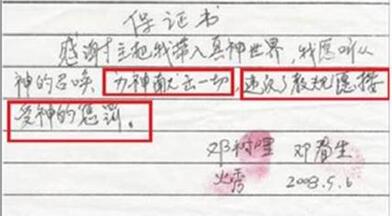 保证书
感谢主把我带入真神世界，我愿听从
神的召唤 为神献出一切，违反了教规愿接
受神的惩罚。
邓 生
2008.5.6